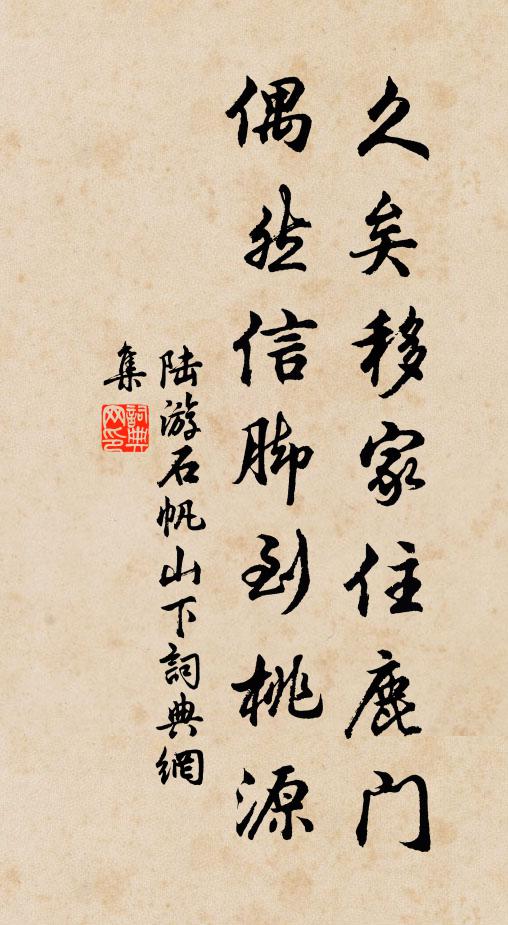 久矣移家住鹿門
偶然信脚到桃源
陸游石帆山下詞典網
集
詞典
网印